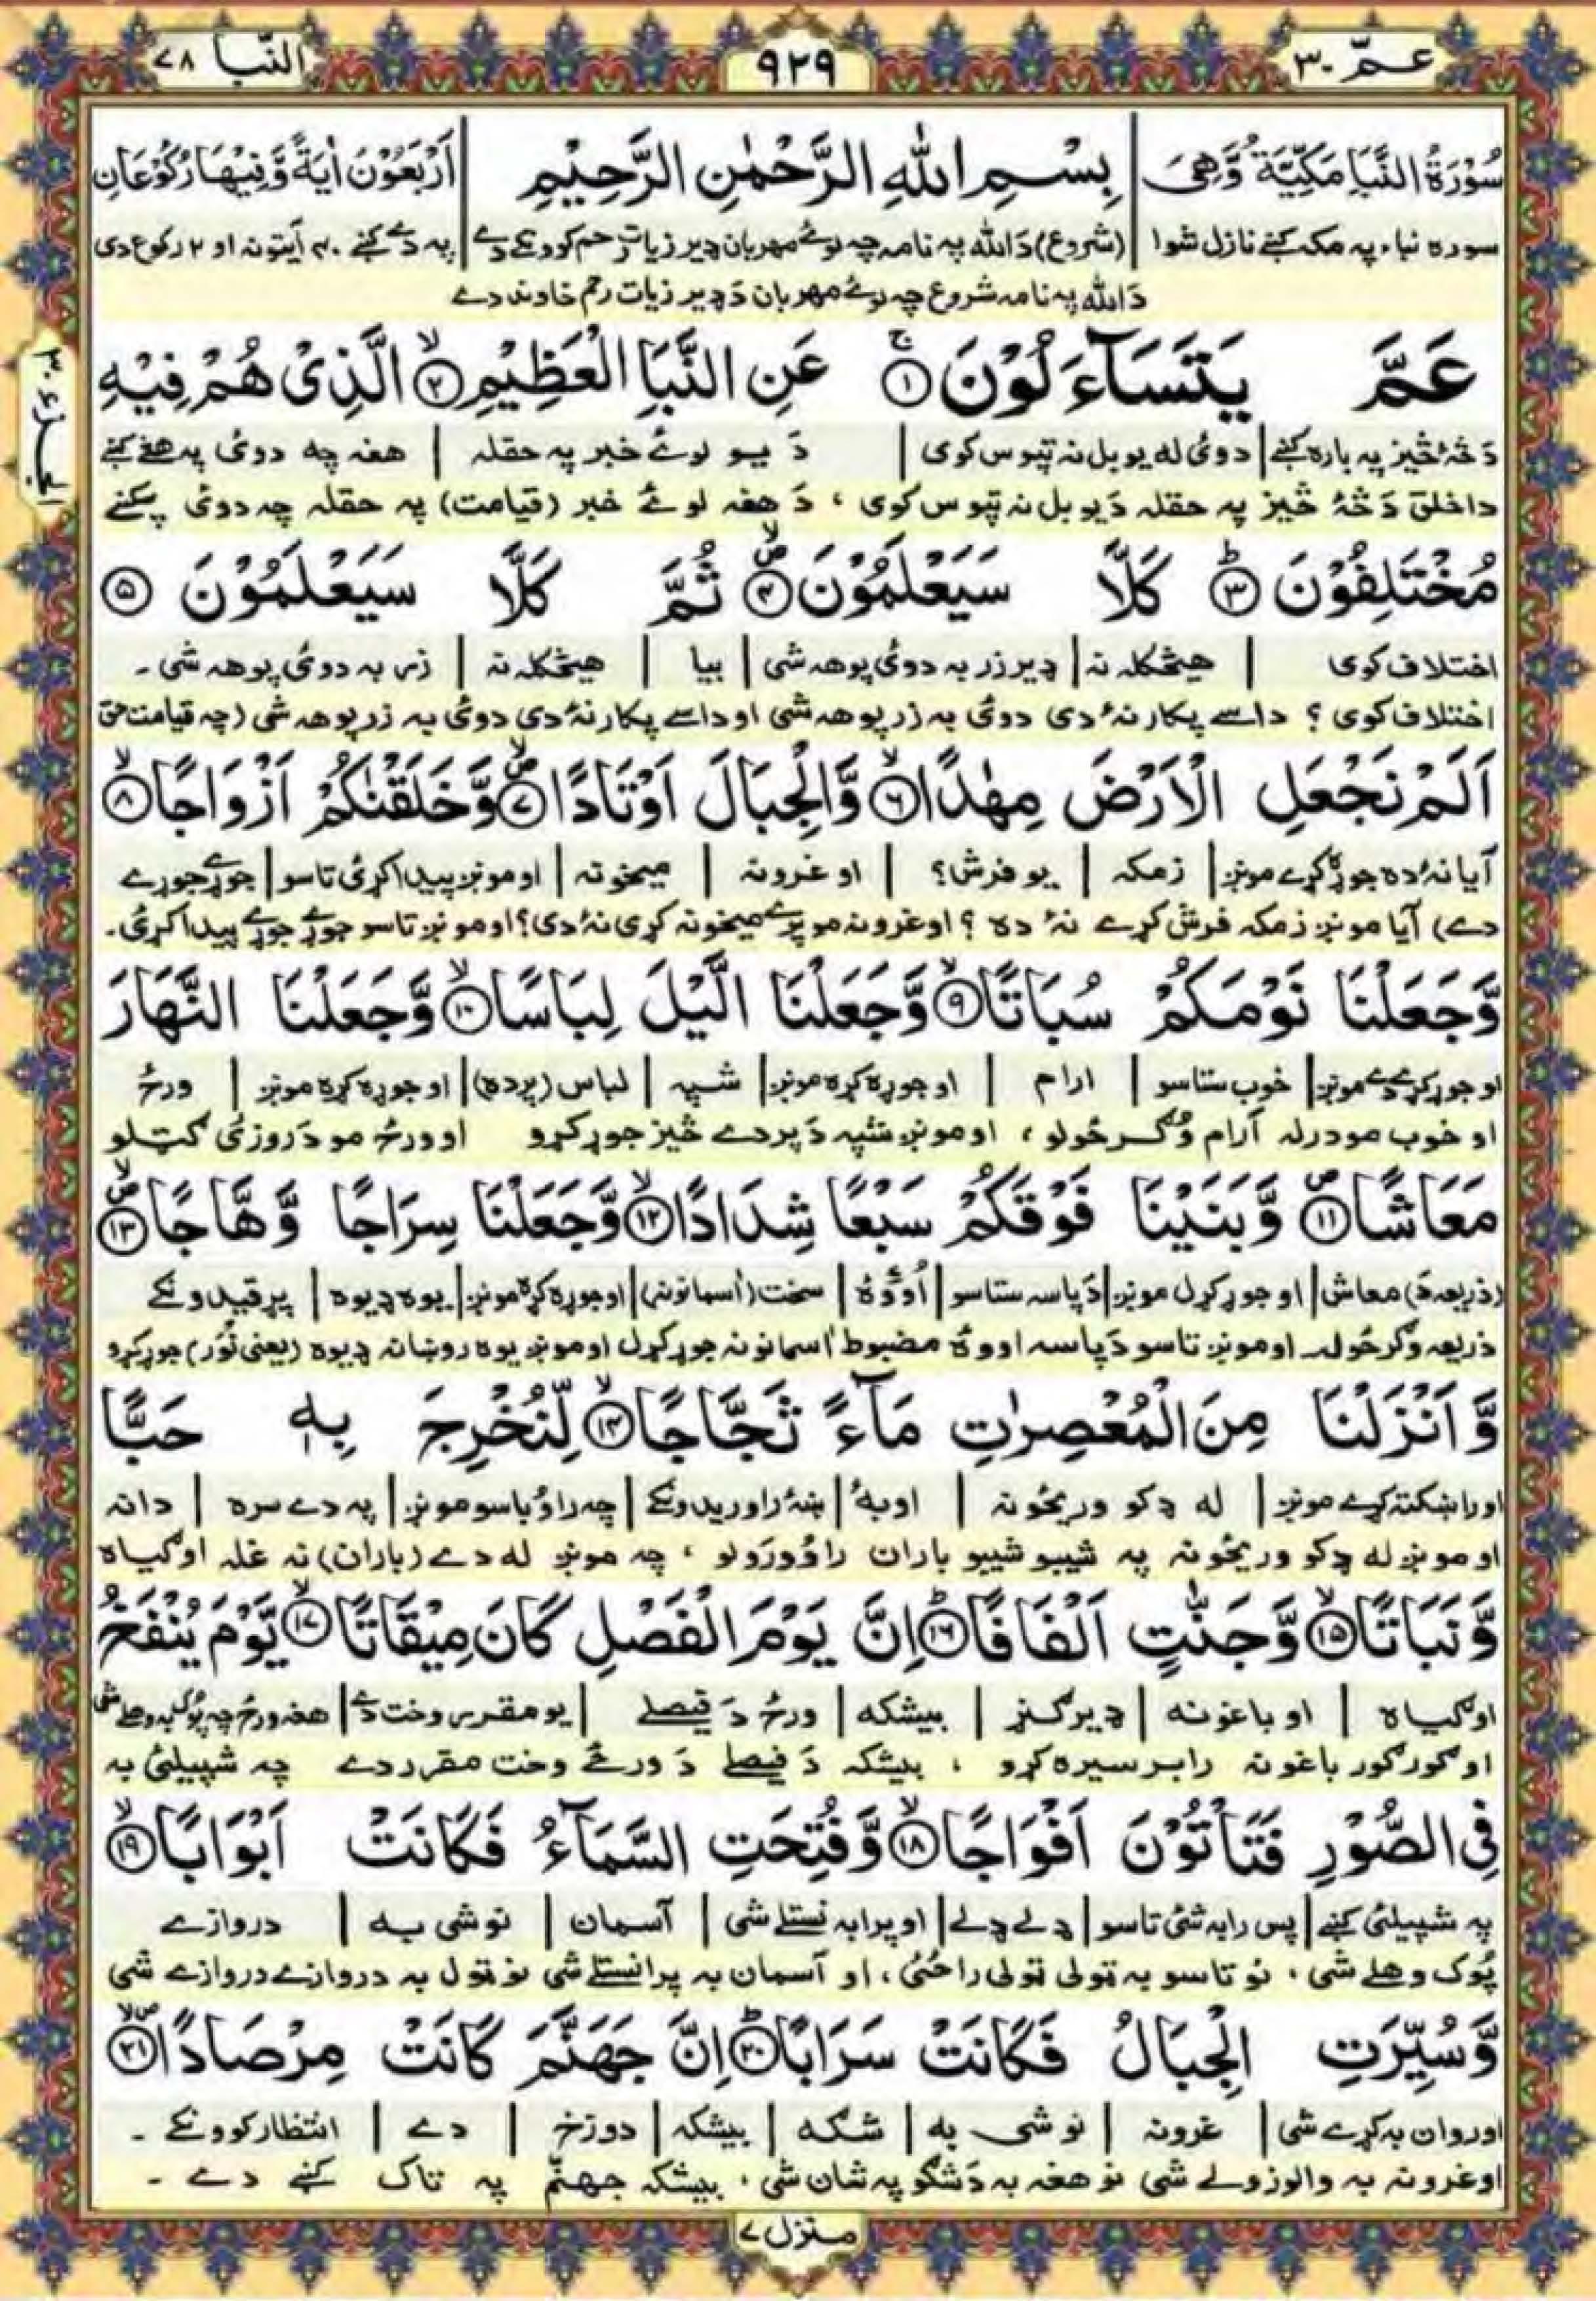 عـمّ ٣٠
٩٢٩
النّبا ٧٨
سُوْرَةُ النَّبَاِ مَكِّيَّةٌ وَّهِیَ | بِسْمِ اللّٰهِ الرَّحْمٰنِ الرَّحِیْمِ | اَرْبَعُوْنَ اٰیَةً وَّفِیْهَا رُكُوْعَانِ
سوره نباء په مکه کښے نازل شوا | (شروع) دَ الله په نامه چه لوئے مهربان ډیر زیات رحم کوونکے دے | په دے کښے ۴۰ آیتونه او ۲ رکوع دی
دَ الله په نامه شروع چه لوئے مهربان دَ ډیر زیات رحم خاوند دے
عَمَّ یَتَسَآءَلُوْنَ ۚ۝۱ عَنِ النَّبَاِ الْعَظِیْمِ ۙ۝۲ الَّذِیْ هُمْ فِیْهِ
دَ څهٔ څیز په باره کښے | دوئ له یو بل نه تپوس کوی | دَ یـو لوئے خبر په حقله | هغه چه دوئ په هغے کښے
داخلق دَ څهٔ څیز په حقله دَ یو بل نه تپوس کوی ، دَ هغه لوئے خبر (قیامت) په حقله چه دوئ پکښے
مُخْتَلِفُوْنَ ؕ۝۳ كَلَّا سَیَعْلَمُوْنَ ۙ۝۴ ثُمَّ كَلَّا سَیَعْلَمُوْنَ ۝۵
اختلاف کوی | هیڅکله نه | ډیر زر به دوئ پوهه شی | بیا | هیڅکله نه | زر به دوئ پوهه شی ۔
اختلاف کوی ؟ داسے پکار نهٔ دی دوئ به زر پوهه شی او داسے پکار نهٔ دی دوئ به زر پوهه شی (چه قیامت حق
اَلَمْ نَجْعَلِ الْاَرْضَ مِهٰدًا ۙ۝۶ وَّالْجِبَالَ اَوْتَادًا ۪ۙ۝۷ وَّخَلَقْنٰكُمْ اَزْوَاجًا ۙ۝۸
آیا نهٔ ده جوړ کړے مونږ | زمکه | یو فرش؟ | او غرونه | میخونه | او مونږ پیدا کړئ تاسو | جوړے جوړے
دے) آیا مونږ زمکه فرش کړے نهٔ ده ؟ او غرونه مو پرے میخونه کړی نهٔ دی؟ او مونږ تاسو جوړے جوړے پیدا کړئ۔
وَّجَعَلْنَا نَوْمَكُمْ سُبَاتًا ۙ۝۹ وَّجَعَلْنَا الَّیْلَ لِبَاسًا ۙ۝۱۰ وَّجَعَلْنَا النَّهَارَ
او جوړ کړے دے مونږ | خوب ستاسو | ارام | او جوړه کړه مونږ | شپه | لباس (پرده) | او جوړه کړه مونږ | ورځ
او خوب مو درله آرام وګرځولو ، او مونږ شپه دَ پردے څیز جوړ کړو او ورځ مو دَ روزئ ګټلو
مَعَاشًا ۪۝۱۱ وَّبَنَیْنَا فَوْقَكُمْ سَبْعًا شِدَادًا ۙ۝۱۲ وَّجَعَلْنَا سِرَاجًا وَّهَّاجًا ۪ۙ۝۱۳
(ذریعه دَ) معاش | او جوړ کړل مونږ | دَپاسه ستاسو | اُووهٔ | سخت (اسمانونه) | او جوړه کړه مونږ | یوه ډیوه | پرقیدونکے
ذریعه وګرځوله او مونږ تاسو دَپاسه اووهٔ مضبوط اسمانونه جوړ کړل او مونږ یوه روښانه ډیوه (یعنی نُور) جوړ کړو
وَّاَنْزَلْنَا مِنَ الْمُعْصِرٰتِ مَآءً ثَجَّاجًا ۙ۝۱۴ لِّنُخْرِجَ بِهٖ حَبًّا
او راښکته کړے مونږ | له ډکو وریځونه | اوبهٔ | ښهٔ راوریدونکے | چه راؤباسو مونږ | په دے سره | دانه
او مونږ له ډکو وریځونه په شیبو شیبو باران راؤورَولو ، چه مونږ له دے (باران) نه غله او ګیاه
وَّنَبَاتًا ۙ۝۱۵ وَّجَنّٰتٍ اَلْفَافًا ؕ۝۱۶ اِنَّ یَوْمَ الْفَصْلِ كَانَ مِیْقَاتًا ۙ۝۱۷ یَّوْمَ یُنْفَخُ
او ګیاه | او باغونه | ډیر ګنړ | بیشکه | ورځ دَ فیصلے | یو مقرر وخت دے | هغه ورځ چه پُوک به وهلے شی
او ګور ګور باغونه رابرسیره کړو ، بیشکه دَ فیصلے دَ ورځے وخت مقرر دے چه شپیلئ به
فِی الصُّوْرِ فَتَاْتُوْنَ اَفْوَاجًا ۙ۝۱۸ وَّفُتِحَتِ السَّمَآءُ فَكَانَتْ اَبْوَابًا ۙ۝۱۹
په شپیلئ کښے | پس رابه شئ تاسو | ډلے ډلے | او پرابه نستلے شی | آسمان | نو شی به | دروازے
پُوک وهلے شی ، نو تاسو به تولی تولی راځئ ، او آسمان به پرانستلے شی نو ټول به دروازے دروازے شی
وَّسُیِّرَتِ الْجِبَالُ فَكَانَتْ سَرَابًا ؕ۝۲۰ اِنَّ جَهَنَّمَ كَانَتْ مِرْصَادًا ۪ۙ۝۲۱
اوروان به کړے شی | غرونه | نو شی به | شګه | بیشکه | دوزخ | دے | انتظار کوونکے ۔
او غرونه به والوزولے شی نو هغه به دَ شګو په شان شی ، بیشکه جهنّم په تاک کښے دے ۔
الجـزء ٣٠
منزل ٧